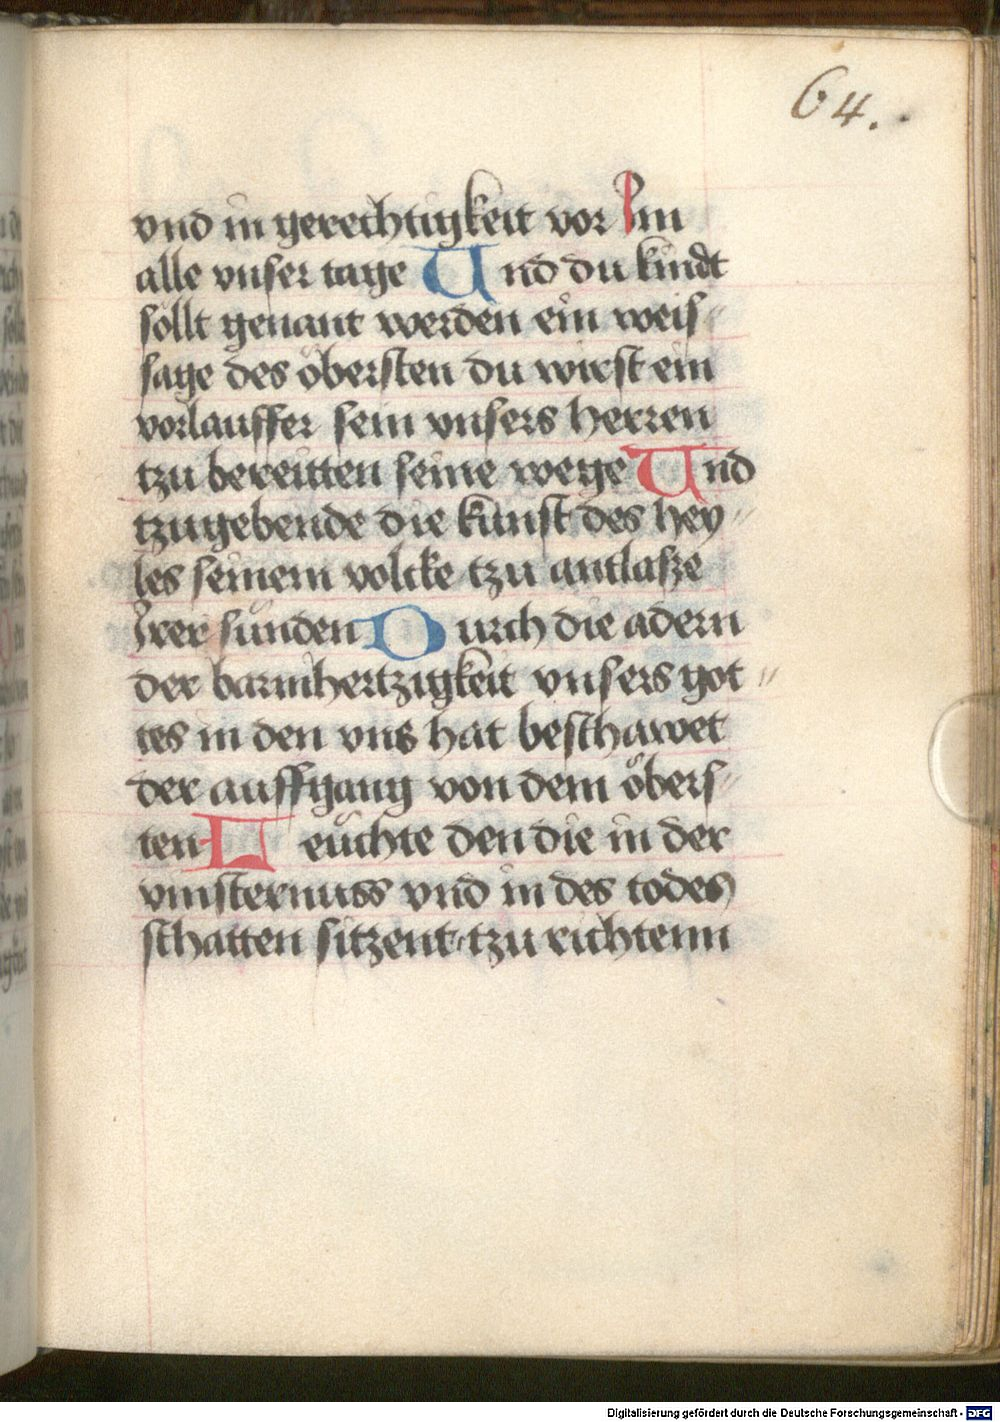 64.
vnd in gerechtigkeit vor Im
alle vnser tage Vnd du kindt
söllt genant werden ein weis
sage des öbersten du wirst ein
vorlauffer sein vnsers herren
tzu bereitten seine wege Vnd
tzugebende die kunst des hey〃
les seinem volcke tzu antlasze
Irer sünden Durch die adern
der barmhertzigkeit vnsers got〃
tes in den vns hat beschawet
der auffgang von dem öbers〃
ten Leuchte den die in der
vinsternuss vnd in des todes
schatten sitzent tzu richtenn
Digitalisierung gefördert durch die Deutsche Forschungsgemeinschaft - DFG